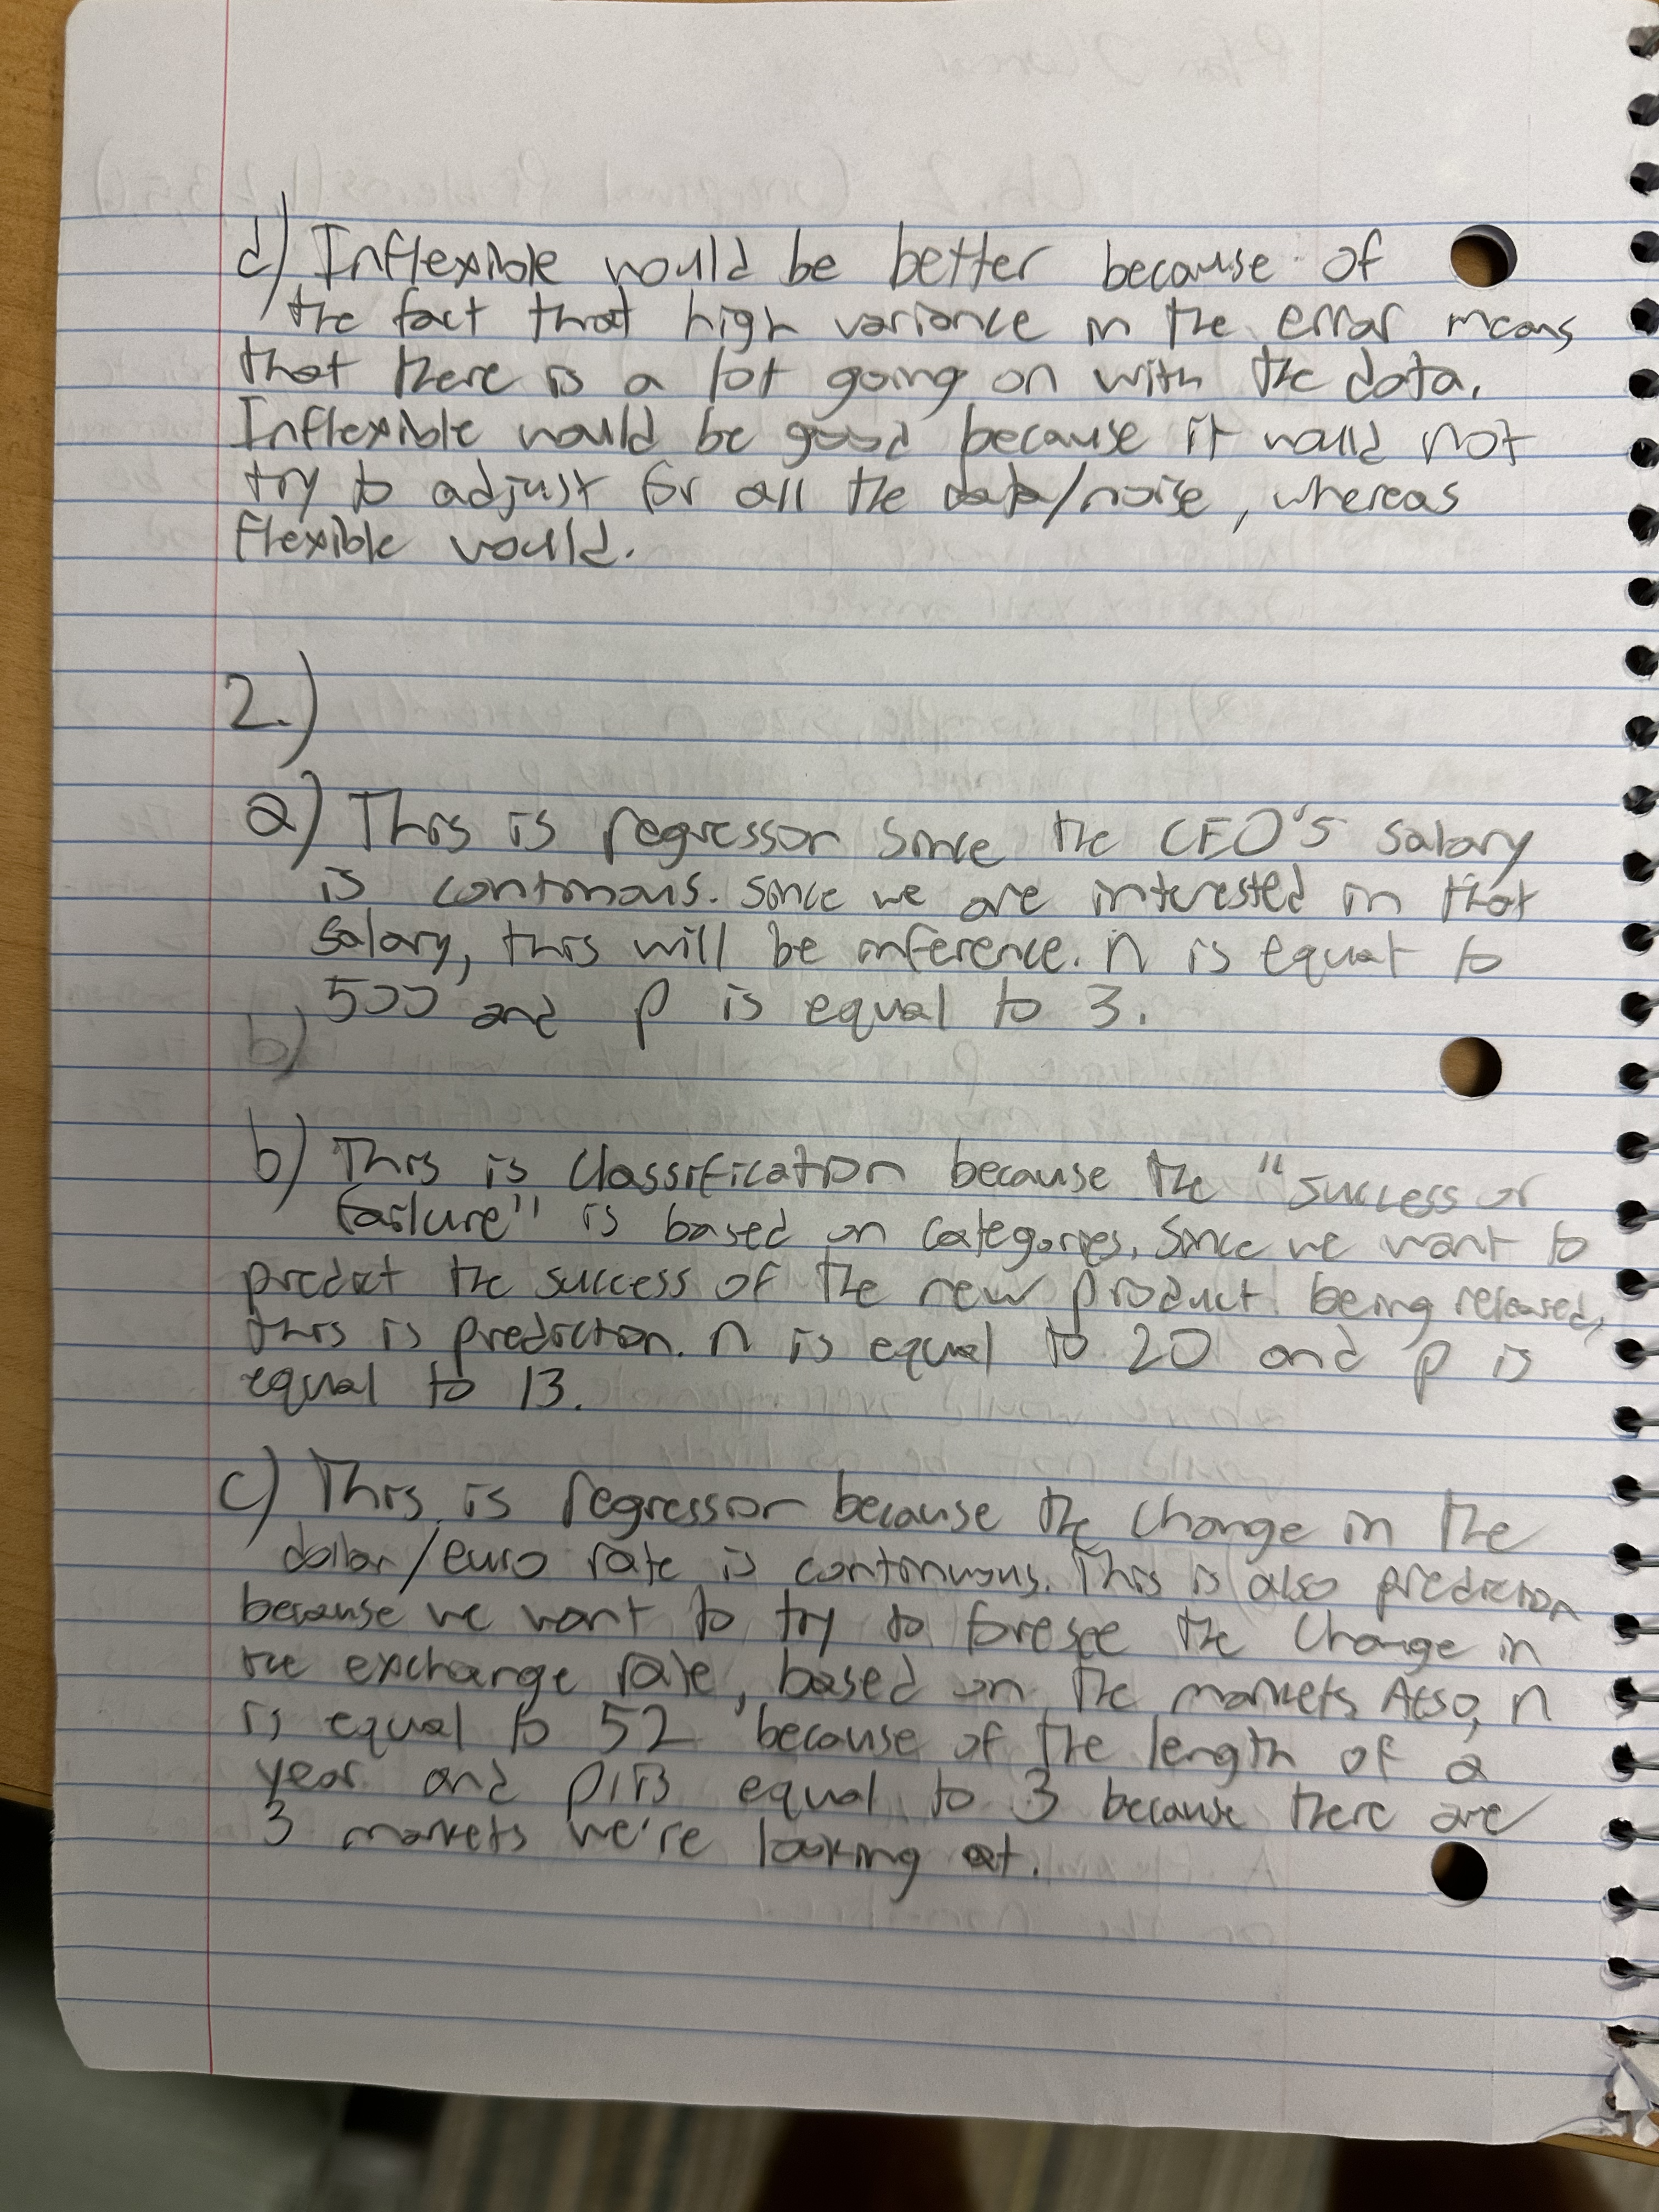 d) Inflexible would be better because of
the fact that high variance in the error means
that there is a lot going on with the data.
Inflexible would be good because it would not
try to adjust for all the data/noise, whereas
flexible would.
2.)
a) This is regression since the CEO's salary
is continous. Since we are interested in that
salary, this will be inference. n is equal to
500 and p is equal to 3.
b)
b) This is classification because the "success or
failure" is based on categories. Since we want to
predict the success of the new product being released,
this is prediction. n is equal to 20 and p is
equal to 13.
c) This is regression because the change in the
dollar/euro rate is continuous. This is also prediction
because we want to try to foresee the change in
the exchange rate, based on the markets. Also, n
is equal to 52 because of the length of a
year and p is equal to 3 because there are
3 markets we're looking at.